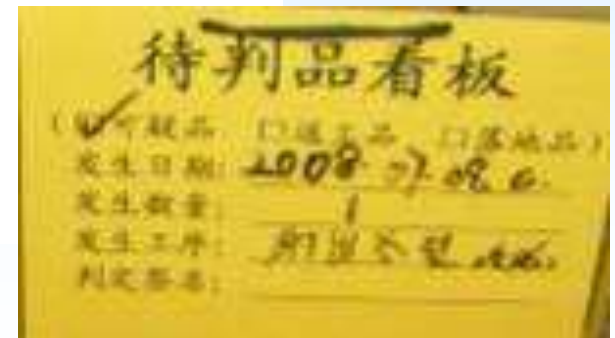 待判品看板
(☑可疑品 口返工品 口落地品)
发生日期: 2008.07.08
发生数量: 1
发生工序:
判定签名: